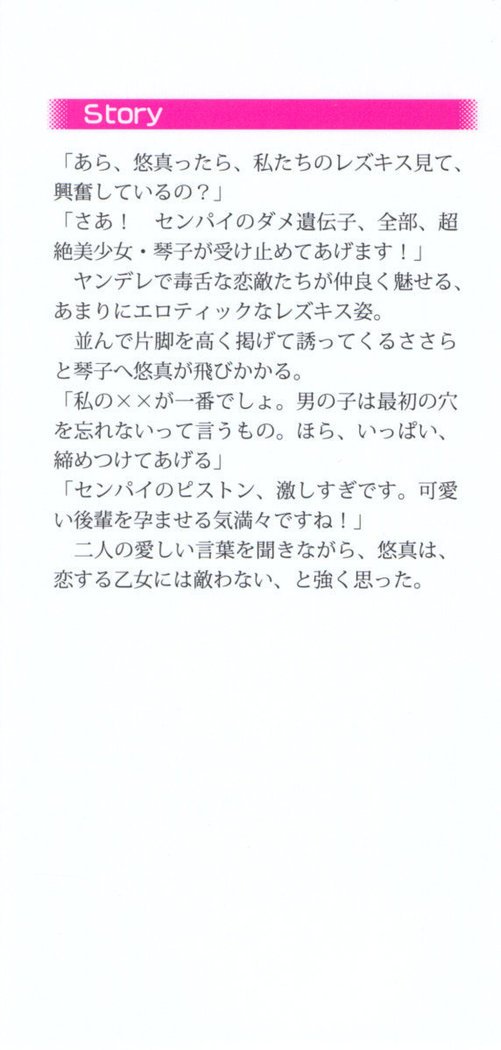 Story
「あら、悠真ったら、私たちのレズキス見て、
興奮しているの？」
「さあ！　センパイのダメ遺伝子、全部、超
絶美少女・琴子が受け止めてあげます！」
　ヤンデレで毒舌な恋敵たちが仲良く魅せる、
あまりにエロティックなレズキス姿。
　並んで片脚を高く掲げて誘ってくるささら
と琴子へ悠真が飛びかかる。
「私の××が一番でしょ。男の子は最初の穴
を忘れないって言うもの。ほら、いっぱい、
締めつけてあげる」
「センパイのピストン、激しすぎです。可愛
い後輩を孕ませる気満々ですね！」
　二人の愛しい言葉を聞きながら、悠真は、
恋する乙女には敵わない、と強く思った。